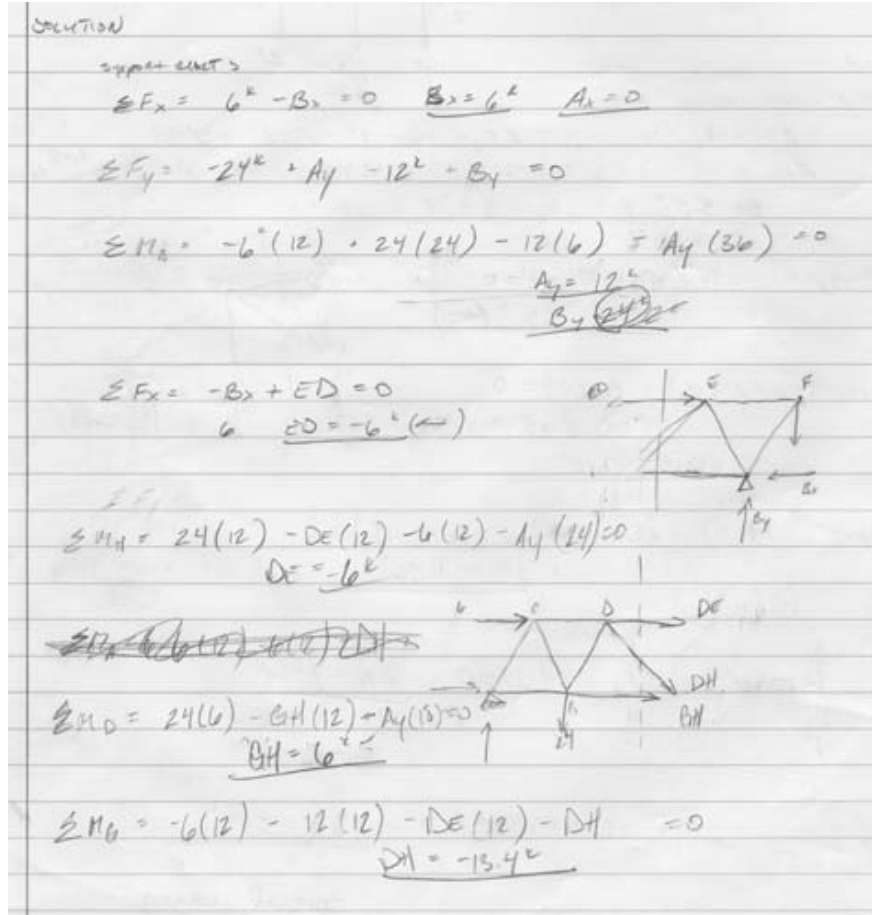 SOLUTION
support react s
ΣFx = 6k - Bx = 0 Bx = 6k Ax = 0
ΣFy = -24k + Ay - 12k + By = 0
ΣMB = -6k(12) + 24(24) - 12(6) - Ay(36) = 0
Ay = 12k
By 24k
ΣFx = -Bx + ED = 0
6 ED = -6k (←)
E F
Bx
By
ΣMH = 24(12) - DE(12) - 6(12) - Ay(24) = 0
DE = -6k
6 C D DE
DH
GH
24
ΣMD = 24(6) - GH(12) - Ay(18) = 0
GH = 6k
ΣMG = -6(12) - 12(12) - DE(12) - DH = 0
DH = -13.4k